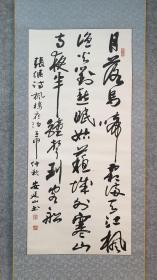 月落烏啼霜滿天江楓
漁火對愁眠姑蘇城外寒山
寺夜半鐘聲到客船
張繼詩楓橋夜泊壬申仲秋安廷山书